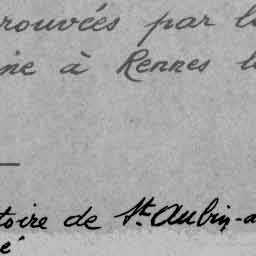 rouvées par l
ine à Rennes l
toire de St. Aubin-d
é